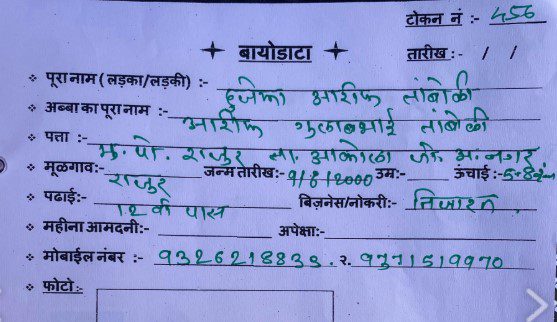 टोकन नं :- 456
बायोडाटा
तारीख :- / /
पूरा नाम ( लड़का/लड़की) :- हुजेफा आशीफ तांबोळी
अब्बा का पूरा नाम :- आशीफ गुलाबभाई तांबोळी
पत्ता :- मु. पो. राजुर ता. आकोला जि. अ. नगर
मूळगाव:- राजुर जन्म तारीख:- 9/8/2000 उम्र:- ऊंचाई :- 5-8
पढाई:- 12 वी पास बिज़नेस/नोकरी:- तिजारत
महीना आमदनी:- अपेक्षा:-
मोबाईल नंबर :- 9326218839. २. 9371519970
फोटो:-